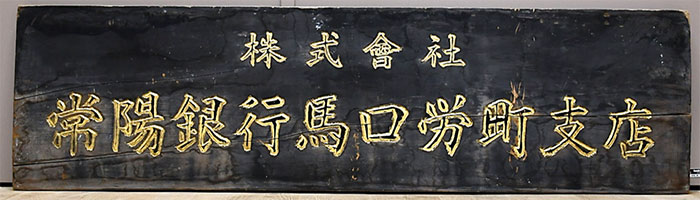 株式會社
常陽銀行馬口労町支店